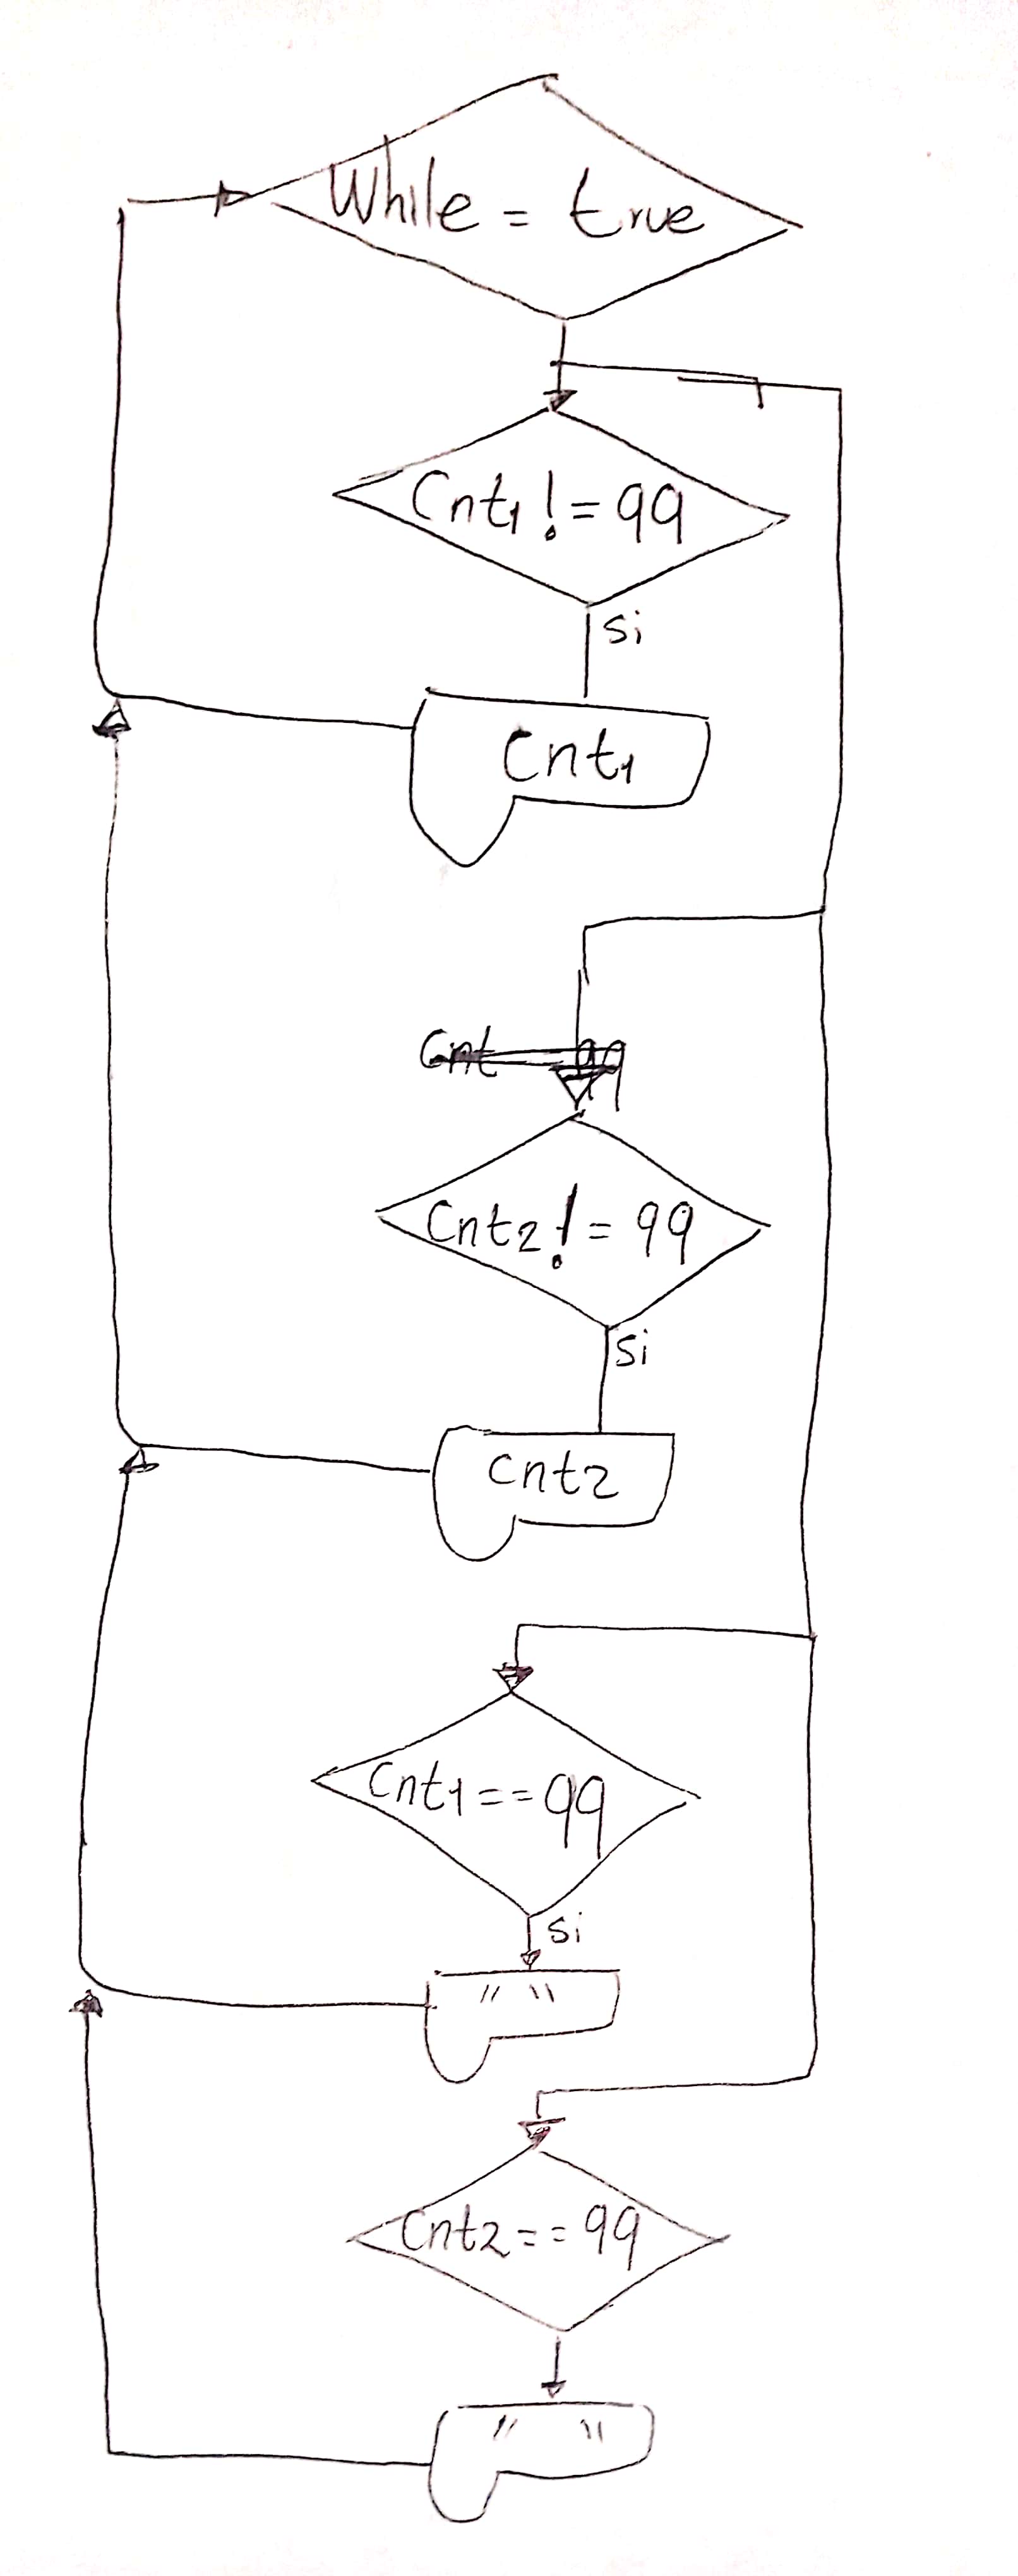 While = true
Cnt1 != 99
si
Cnt1
Cnt2 != 99
si
Cnt2
Cnt1 == 99
si
" "
Cnt2 == 99
" "